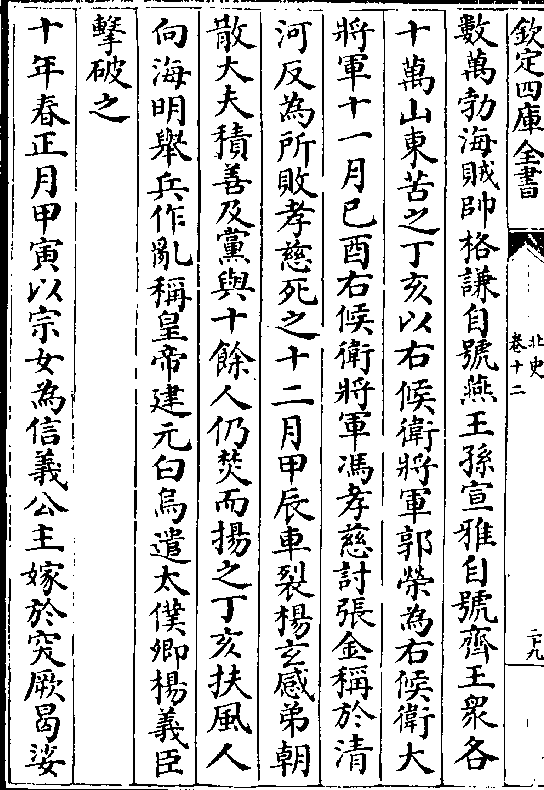 欽定四庫全書
北史
卷十二
二十九
數萬勃海賊帥格謙自號燕王孫宣雅自號齊王衆各
十萬山東苦之丁亥以右候衛將軍郭榮為右候衛大
將軍十一月己酉右候衛將軍馮孝慈討張金稱於清
河反為所敗孝慈死之十二月甲辰車裂楊玄感弟朝
散大夫積善及黨與十餘人仍焚而揚之丁亥扶風人
向海明舉兵作亂稱皇帝建元白烏遣太僕卿楊義臣
擊破之
十年春正月甲寅以宗女為信義公主嫁於突厥曷娑